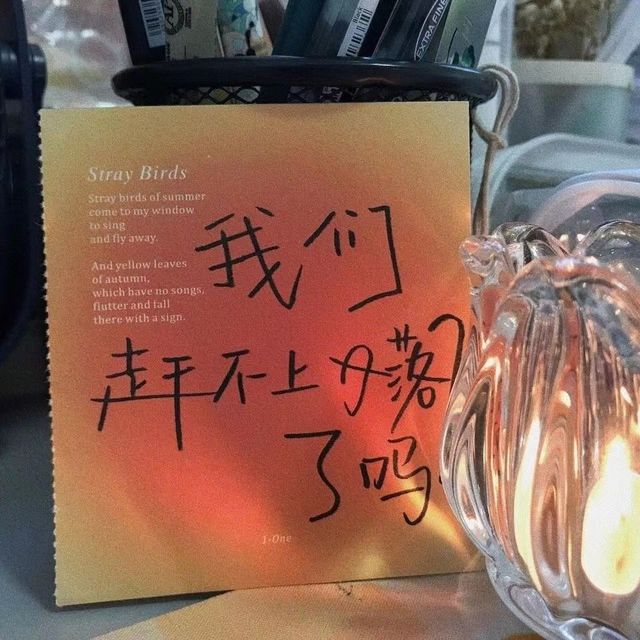 EXTRA FINE
Stray Birds
Stray birds of summer
come to my window
to sing
and fly away.
And yellow leaves
of autumn,
which have no songs,
flutter and fall
there with a sign.
我们
赶不上日落
了吗?
J-One